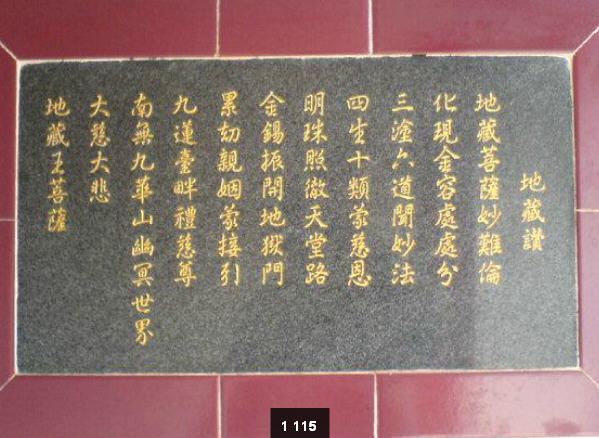 地藏讚
地藏菩薩妙難倫
化現金容處處分
三塗六道聞妙法
四生十類蒙慈恩
明珠照徹天堂路
金錫振開地獄門
累劫親姻蒙接引
九蓮臺畔禮慈尊
南無九華山幽冥世界
大慈大悲
地藏王菩薩
1 115